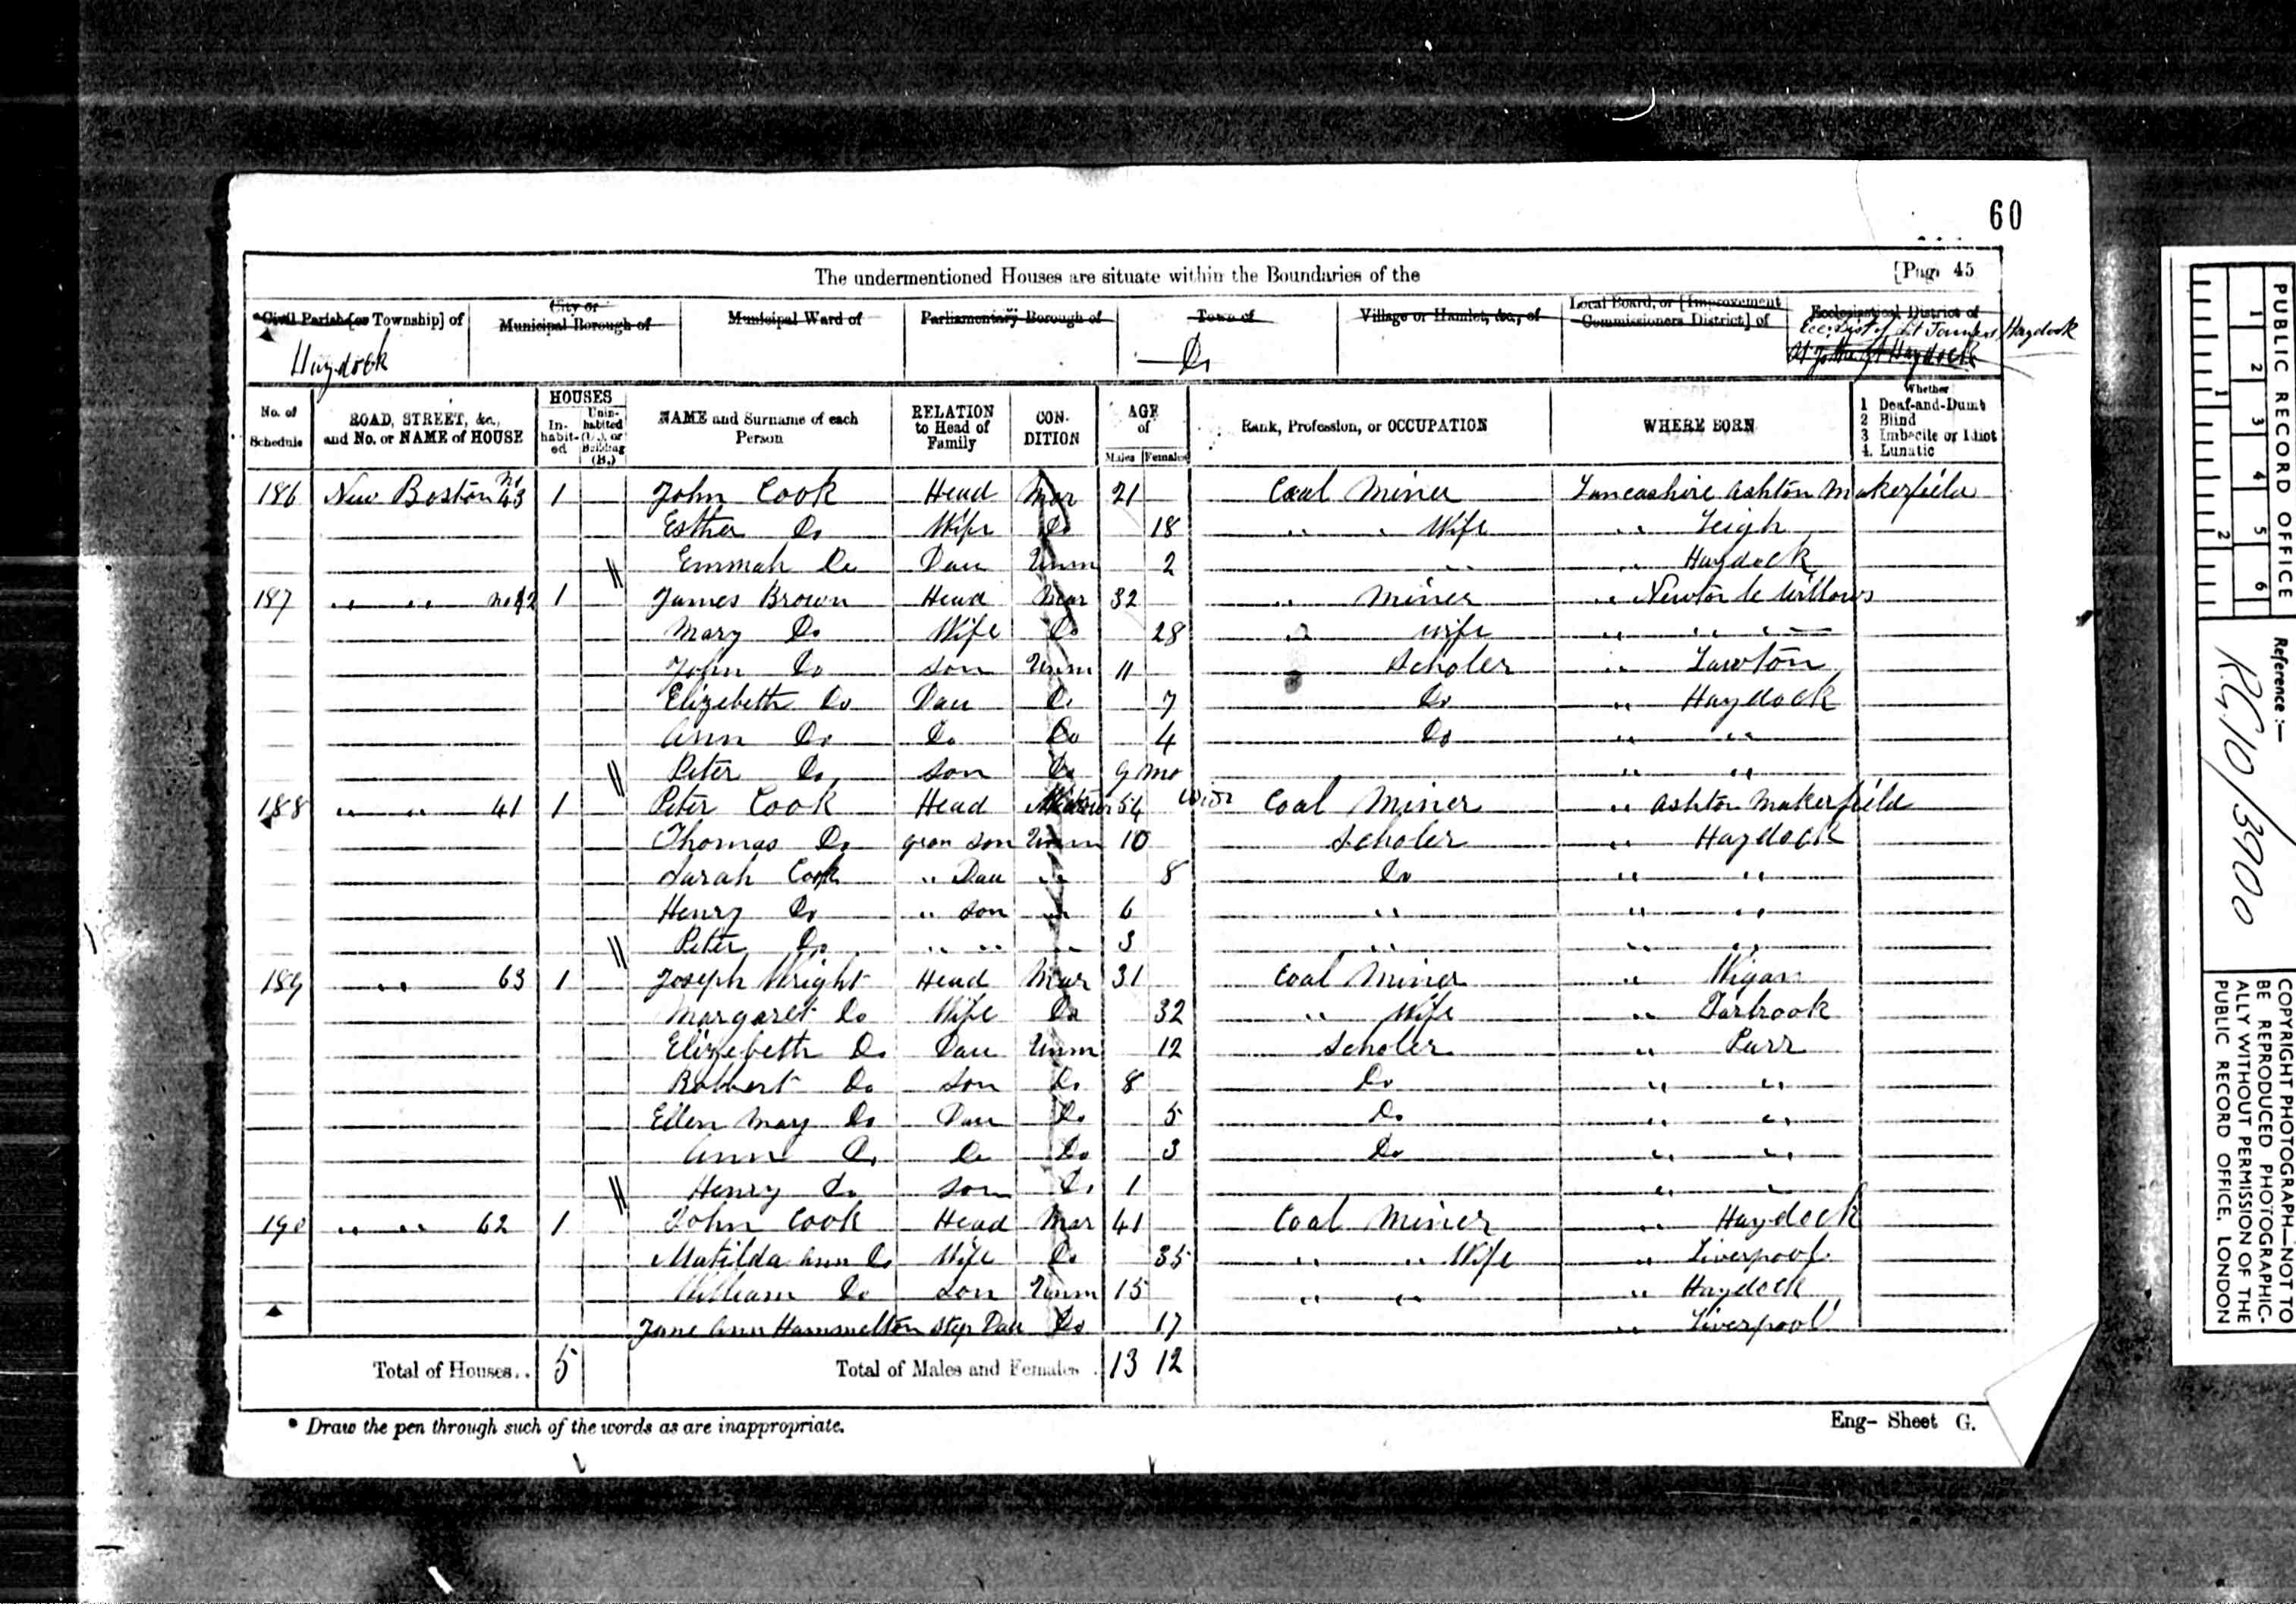 60
The undermentioned Houses are situate within the Boundaries of the
[Page 45
Civil Parish [or Township] of
City or Municipal Borough of
Municipal Ward of
Parliamentary Borough of
Town of
Village or Hamlet, &c., of
Local Board, or [Improvement Commissioners District] of
Ecclesiastical District of
Haydock
Do
Haydock
No. of Schedule
ROAD, STREET, &c., and No. or NAME of HOUSE
HOUSES
In-habit-ed
Unin-habited (U.), or Building (B.)
NAME and Surname of each Person
RELATION to Head of Family
CON-DITION
AGE of
Males
Females
Rank, Profession, or OCCUPATION
WHERE BORN
Whether
1 Deaf-and-Dumb
2 Blind
3 Imbecile or Idiot
4. Lunatic
186 New Boston No 43 1 John Cook Head Mar 21 Coal Miner Lancashire Ashton Makerfield
Esther Do Wife Do 18 " " Wife " Leigh
Emmah Do Dau Unm 2 " " Haydock
187 " " No 42 1 James Brown Head Mar 32 " Miner " Newton le Willows
Mary Do Wife Do 28 " wife " " " "
John Do Son Unm 11 Scholer " Lawton
Elizebeth Do Dau Do 7 Do " Haydock
Ann Do Do Do 4 Do " "
Peter Do Son Do 9 mo " "
188 " " 41 1 Peter Cook Head 54 Widr Coal Miner " Ashton Makerfield
Thomas Do gran son Unm 10 Scholer " Haydock
Sarah Cook " Dau " 8 Do " "
Henry Do " son " 6 " " "
Peter Do " " " 3 " " "
189 " " 63 1 Joseph Wright Head Mar 31 Coal Miner " Wigan
Margaret Do Wife Do 32 " Wife " Tarbrook
Elizebeth Do Dau Unm 12 Scholer " Parr
Robbert Do Son Do 8 Do " "
Ellen Mary Do Dau Do 5 Do " "
Ann Do Do Do 3 Do " "
Henry Do Son Do 1 " "
190 " " 62 1 John Cook Head Mar 41 Coal Miner " Haydock
Matilda Ann Do Wife Do 35 " " Wife " Liverpool
William Do Son Unm 15 " " " Haydock
Jane Ann Hammelton Step Dau Do 17 " Liverpool
Total of Houses.. 5
Total of Males and Females . 13 12
* Draw the pen through such of the words as are inappropriate.
Eng- Sheet G.
PUBLIC RECORD OFFICE
1 2 3 4 5 6
1 2
Reference :-
R.G. 10/3900
COPYRIGHT PHOTOGRAPH—NOT TO BE REPRODUCED PHOTOGRAPHIC-ALLY WITHOUT PERMISSION OF THE PUBLIC RECORD OFFICE, LONDON